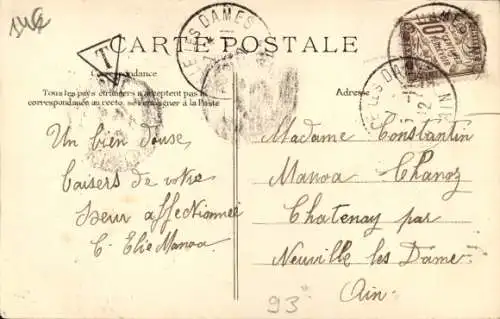 CARTE POSTALE
T
Correspondance
Tous les pays étrangers n'acceptent pas la
correspondance au recto, se renseigner à la Poste
Adresse
Un bien douse
baisers de votre
Sœur affectionnée
C. Elie Manoa
Madame Constantin
Manoa Chanoz
Chatenay par
Neuville les Dame
Ain
93
LES DAMES
10